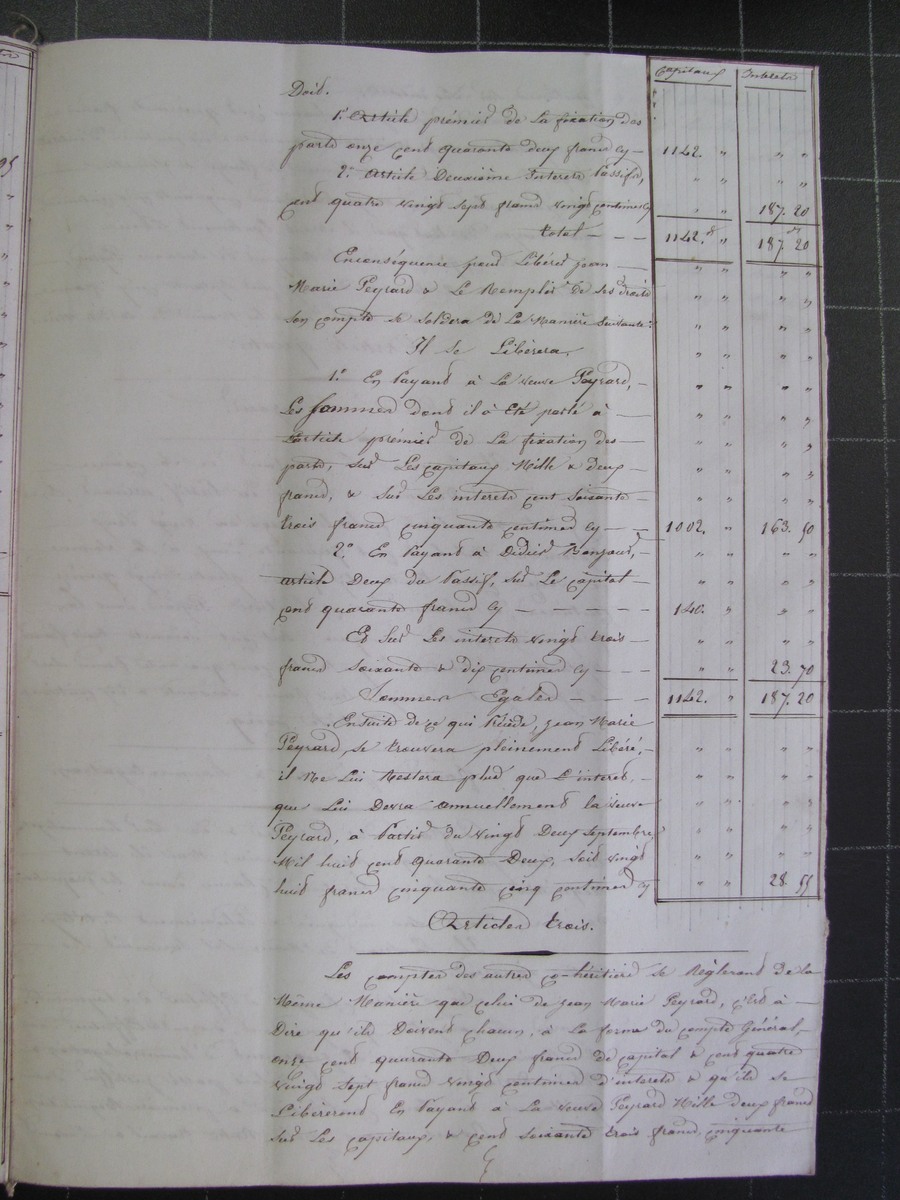 Capitaux Interets
Doit.
1º Article prémier de La fixation des
parts onze cent quarante deux francs Cy — 1142. " " "
2º Article Deuxième Interets Passifs, " " " "
cent quatre vingt sept francs vingt centimes Cy " " 187. 20
total — — — 1142. " 187. 20
Enconséquence pour Libérer jean — " " " "
Marie Peyrard & Le Remploi de ses droits " " " "
son compte se soldera de La Manière Suivante: " " " "
Il se Libèrera. " " " "
1º En Payant à La veuve Peyrard, — " " " "
Les Sommes dont il à Eté parlé à — " " " "
L'article prémier de La fixation des — " " " "
parts, sur Les capitaux Mille & deux — " " " "
francs, & sur Les interets cent soixante — " " " "
trois francs cinquante centimes Cy — — 1002. " 163. 50
2º En Payant à Didier Bonjour, — " " " "
article Deux du Passif, sur Le capital — " " " "
cent quarante francs Cy — — — — — 140. " " "
Et sur Les interets vingt trois — " " " "
francs soixante & dix centimes Cy — — — " " 23. 70
Sommes Egales — — — 1142. " 187. 20
Ensuite de ce qui Précède, jean Marie
Peyrard se trouvera pleinement Libéré, — " " " "
il Ne Lui Restera plus que L'interet, — " " " "
que Lui Devra annuellement la veuve " " " "
Peyrard, à Partir du vingt Deux septembre " " " "
Mil huit cent quarante Deux, soit vingt " " " "
huit francs cinquante cinq centimes Cy " " 28. 55
Article trois.
Les comptes des autres co-héritiers se Règleront de la
Même Manière que celui de jean Marie Peyrard, c'est à —
Dire qu'ils Doivent chacun, à La forme du compte Général —
onze cent quarante Deux francs de capital & cent quatre
vingt sept francs vingt centimes d'interets & qu'ils se —
Libèreront En Payant à La veuve Peyrard Mille deux francs
sur Les capitaux, & cent soixante trois francs cinquante